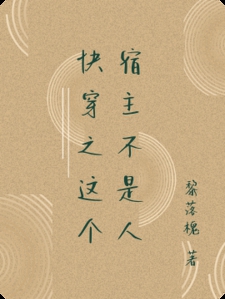 快穿之这个
宿主不是人
黎落槐 著